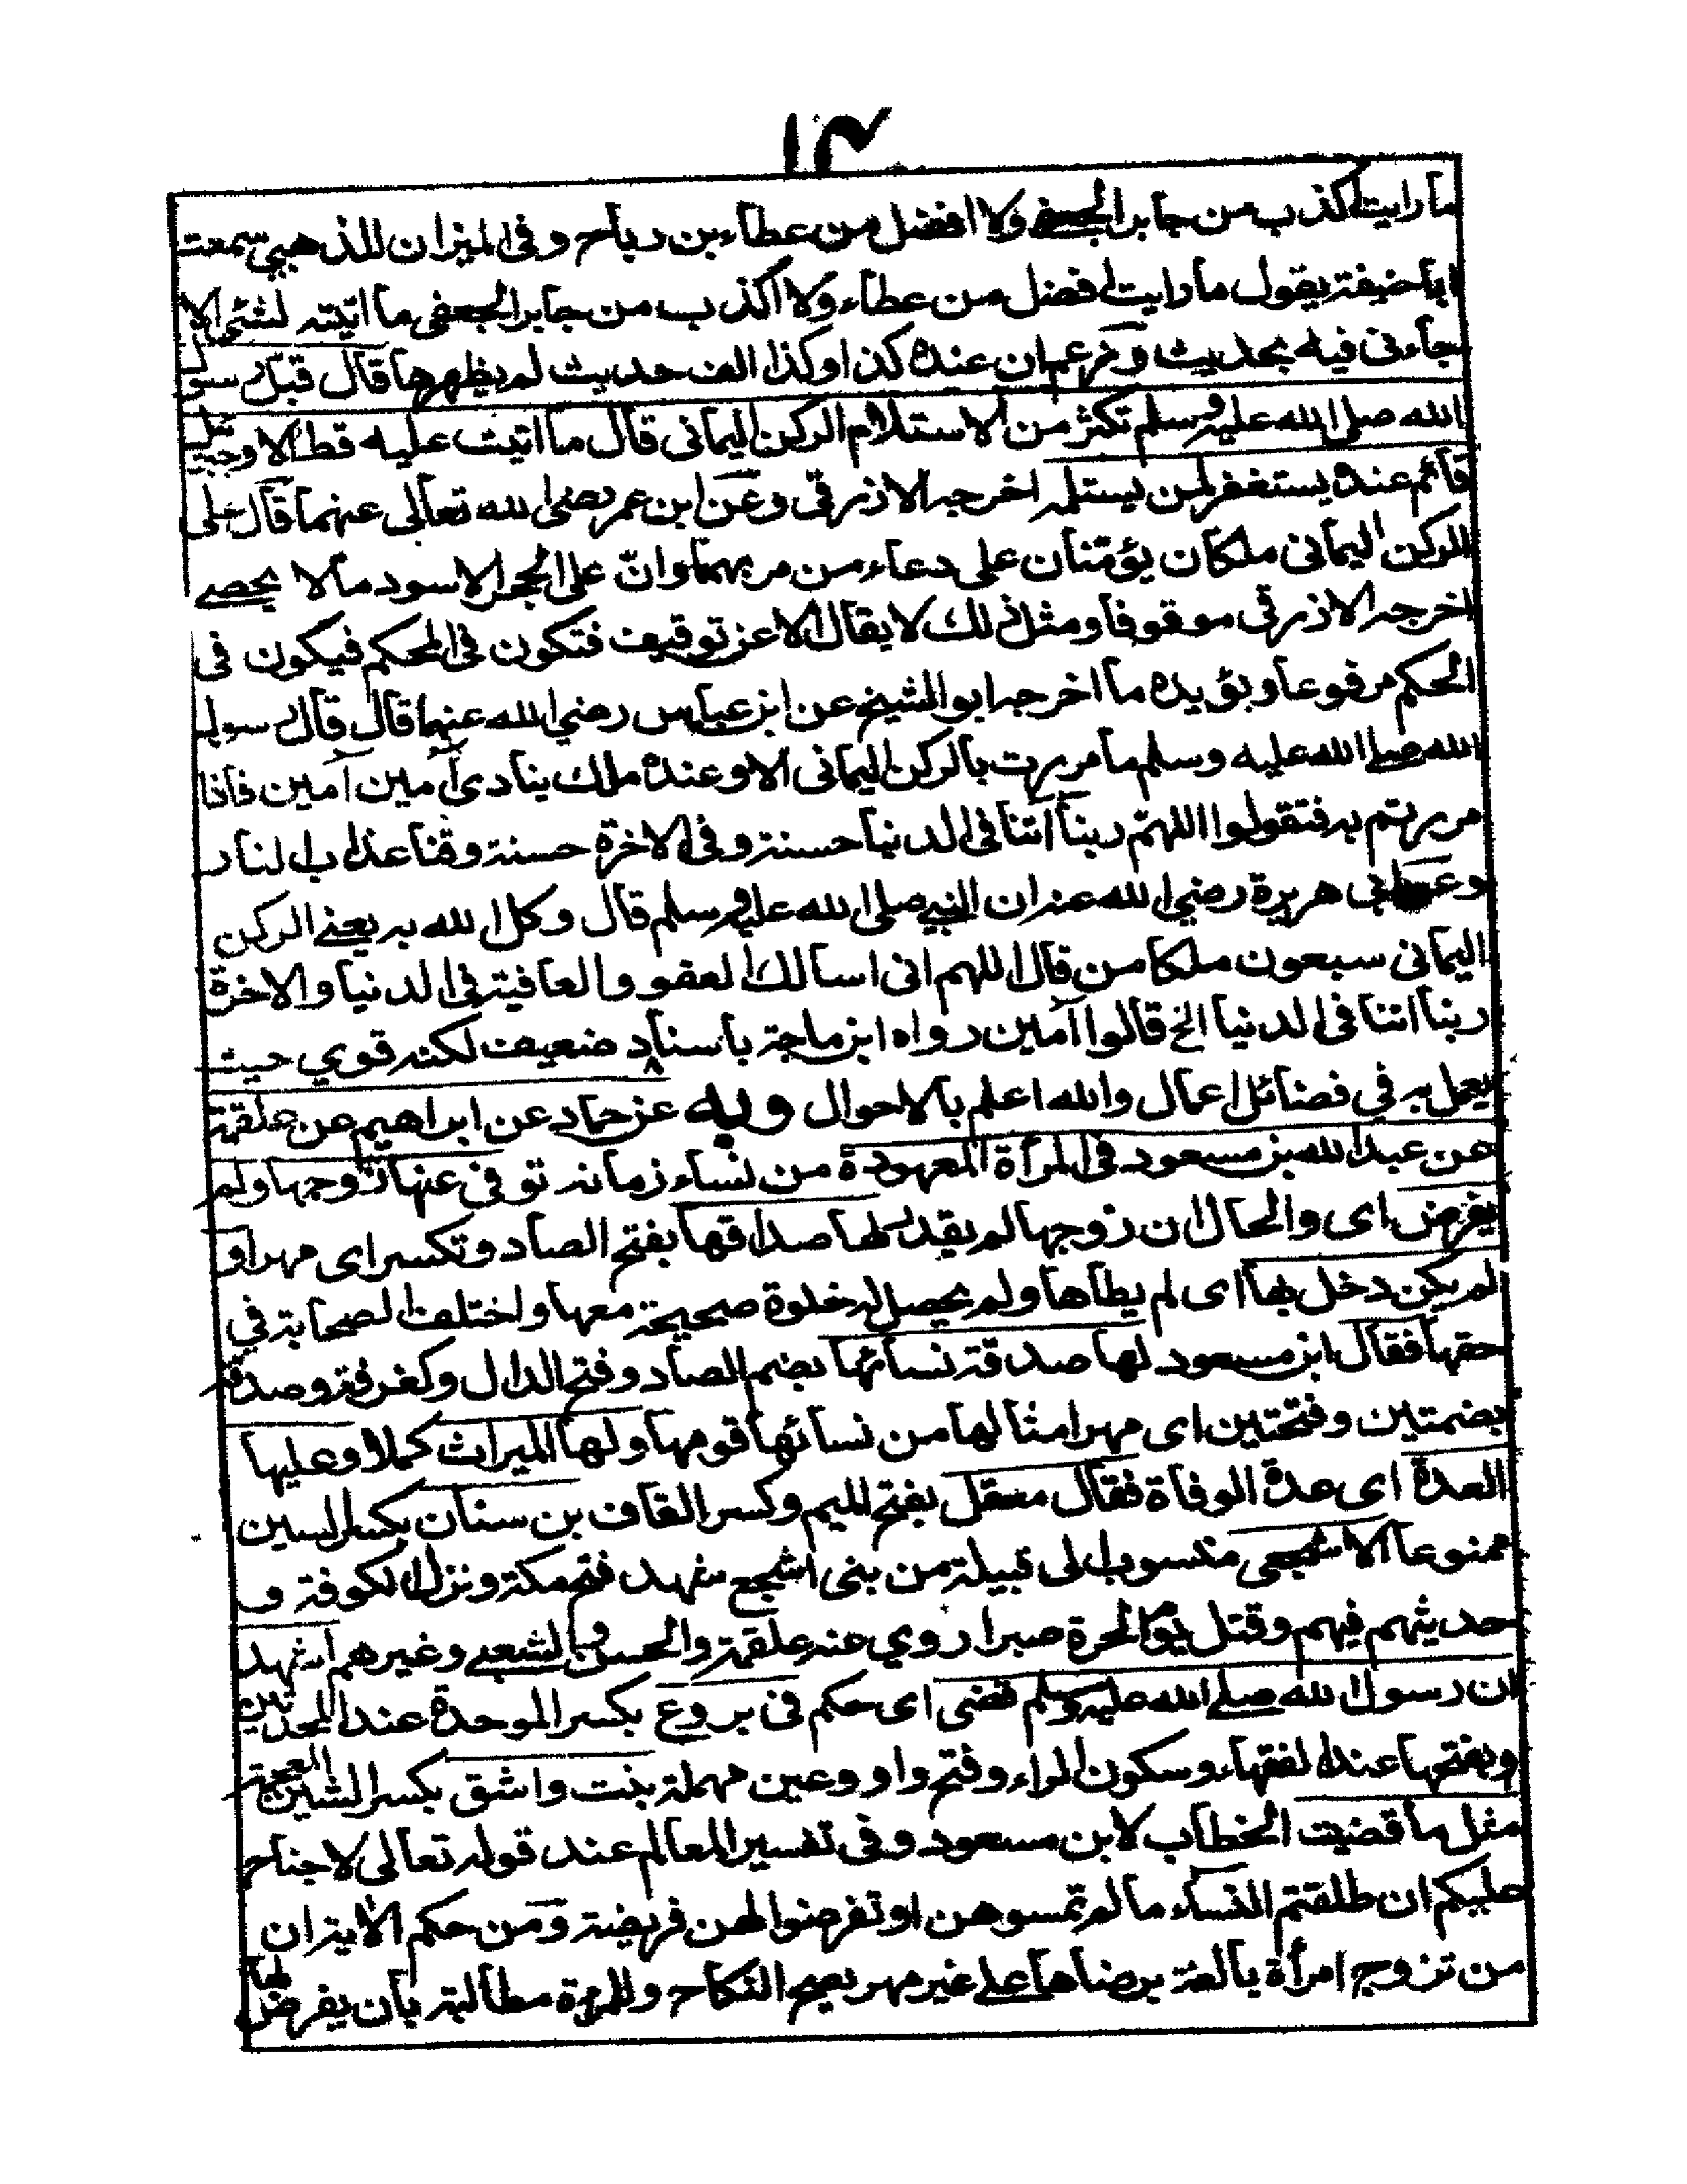 ١٢
ما رايت اكذب من جابر الجعفى ولا افضل من عطاء بن رباح وفى الميزان للذهبي سمعت
ابا حنيفة يقول ما رايت افضل من عطاء ولا اكذب من جابر الجعفى ما اتيته لشئ الا
جاءنى فيه بحديث وزعم ان عنده كذا وكذا الف حديث لم يظهرها قال قيل رسول
الله صلى الله عليه وسلم تكثر من الاستلام الركن اليمانى قال ما اتيت عليه قط الا وجبرئيل
قائم عنده يستغفر لمن يستلمه اخرجه الازرقى وعن ابن عمر رضى الله تعالى عنهما قال على
الركن اليمانى ملكان يؤمنان على دعاء من مر بهما وانّ على الحجر الاسود مالا يحصى
اخرجه الازرقى موقوفا ومثل ذلك لا يقال الا عن توقيف فتكون فى المحكم فيكون فى
الحكم مرفوعا ويؤيده ما اخرجه ابو الشيخ عن ابن عباس رضي الله عنهما قال قال رسول
الله صلى الله عليه وسلم ما مررت بالركن اليمانى الا وعنده ملك ينادى آمين آمين فاذا
مررتم به فقولوا اللهم ربنا اتنا فى الدنيا حسنة وفى الاخرة حسنة وقنا عذاب النار
وعن ابى هريرة رضي الله عنه ان النبي صلى الله عليه وسلم قال وكل الله به يعنى الركن
اليمانى سبعون ملكا من قال اللهم انى اسالك العفو والعافية فى الدنيا والاخرة
ربنا اتنا فى الدنيا الخ قالوا آمين رواه ابن ماجة باسناد ضعيف لكنه قوي حيث
يعمل به في فضائل اعمال والله اعلم بالاحوال وبه عن حماد عن ابراهيم عن علقمة
عن عبد الله بن مسعود فى المرأة المعهودة من نساء زمانه توفي عنها زوجها ولم
يفرض اى والحال ان زوجها لم يقدر لها صداقها بفتح الصاد وتكسر اى مهرا و
لم يكن دخل بها اى لم يطأها ولم يحصل له خلوة صحيحة معها واختلف الصحابة في
حقها فقال ابن مسعود لها صدقة نسائها بضم الصاد وفتح الدال وكغرفة وصدقة
بضمتين وفتحتين اى مهرا مثالها من نسائها قومها ولها الميراث كملا وعليها
العدة اى عدة الوفاة فقال معقل بفتح الميم وكسر القاف بن سنان بكسر السين
ممنوعا الاشجعى منسوب الى قبيلة من بنى اشجع شهد فتح مكة ونزل الكوفة و
حديثهم فيهم وقتل يوم الحرة صبرا روي عنه علقمة والحسن والشعبى وغيرهم اشهد
ان رسول الله صلى الله عليه وسلم قضى اى حكم فى بروع بكسر الموحدة عند المحدثين
وبفتحها عند الفقهاء وسكون الراء وفتح واو وعين مهملة بنت واشق بكسر الشين المعجمة
مثل ما قضيت الخطاب لابن مسعود وفى تفسير المعالم عند قوله تعالى لا جناح
عليكم ان طلقتم النساء ما لم تمسوهن او تفرضوا لهن فريضة ومن حكم الاية ان
من تزوج امرأة بالغة برضاها على غير مهر يصح النكاح وللمرءة مطالبته بان يفرض لها